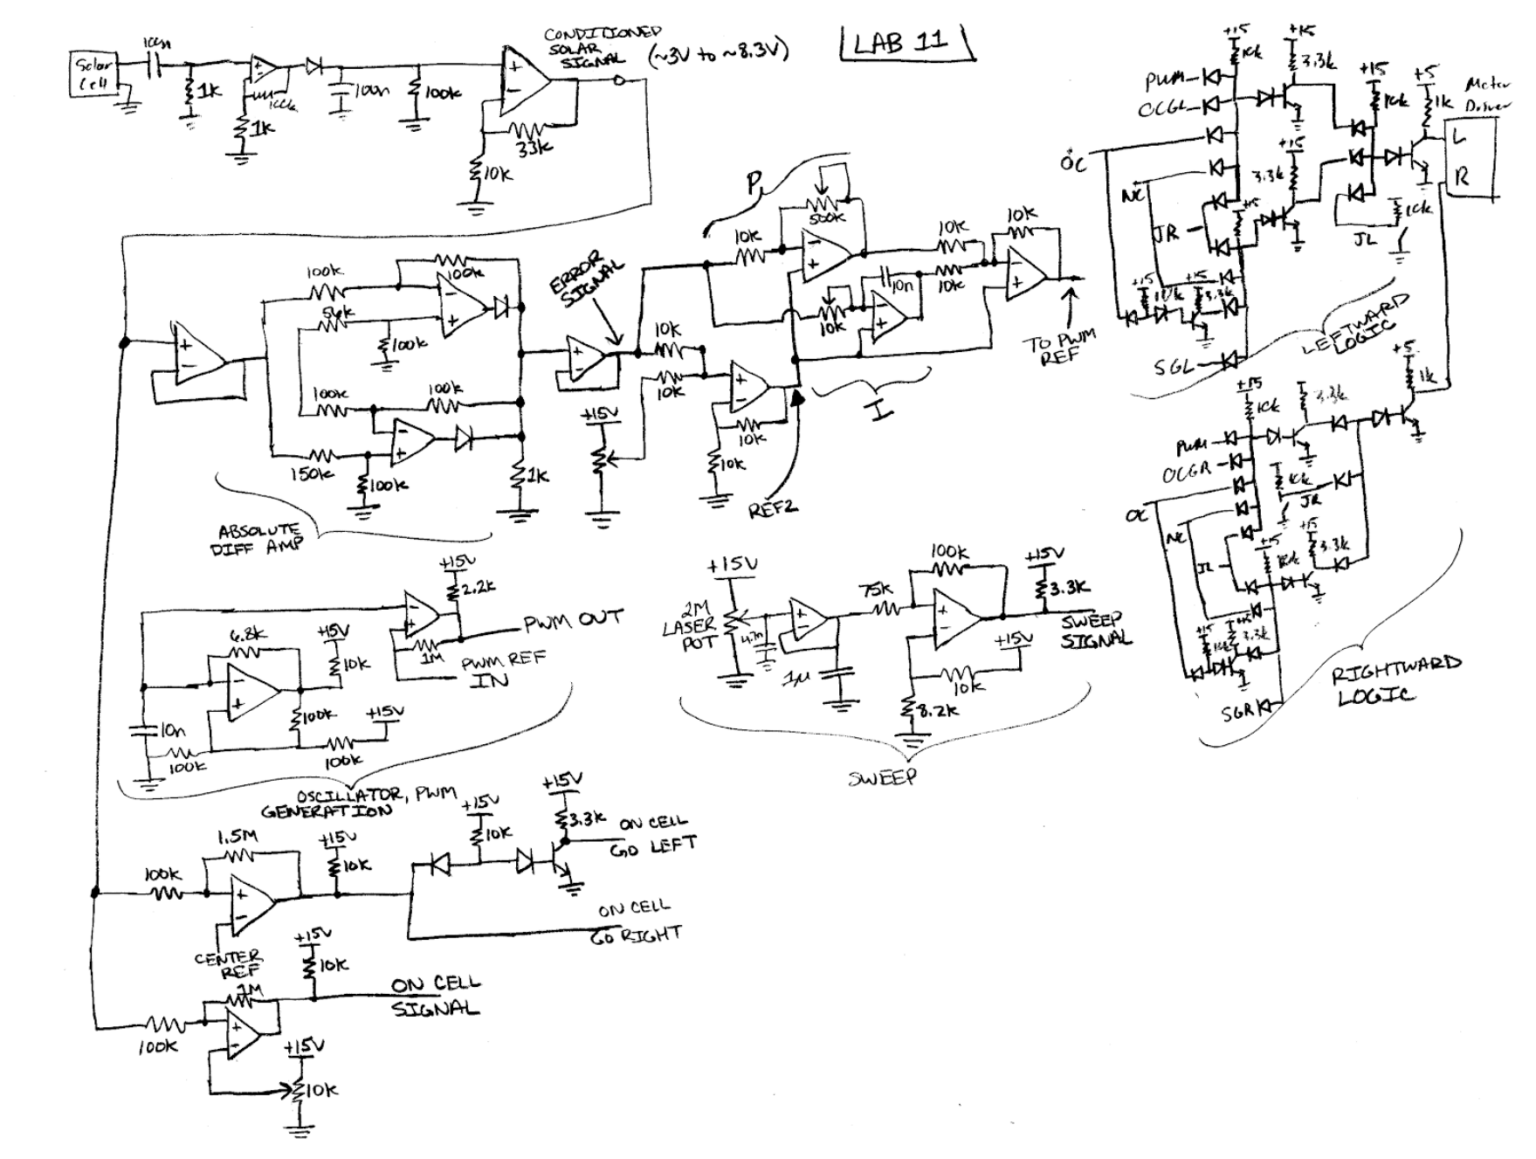 LAB 11
Solar
Cell
100n
1k
100k
1k
100n
100k
CONDITIONED
SOLAR
SIGNAL
(~3V to ~8.3V)
33k
10k
100k
100k
56k
100k
100k
100k
150k
100k
1k
ABSOLUTE
DIFF AMP
ERROR
SIGNAL
10k
10k
+15V
10k
10k
REF2
P
10k
500k
10k
10n
10k
10k
10k
I
TO PWM
REF
+15V
2.2k
PWM OUT
1M
PWM REF
IN
6.8k
+15V
10k
100k
+15V
10n
100k
100k
OSCILLATOR, PWM
GENERATION
+15V
2M
LASER
POT
4.7n
1µ
75k
100k
+15V
3.3k
SWEEP
SIGNAL
+15V
10k
8.2k
SWEEP
1.5M
100k
+15V
10k
CENTER
REF
+15V
10k
+15V
3.3k
ON CELL
GO LEFT
ON CELL
GO RIGHT
+15V
10k
1M
100k
ON CELL
SIGNAL
+15V
10k
+15
10k
+15
3.3k
PWM
OCGL
OC
NC
JR
+15
3.3k
+15
+15
10k
+5
1k
Motor
Driver
L
R
10k
JL
+15
+15
3.3k
SGL
LEFTWARD
LOGIC
+15
10k
3.3k
+5
1k
PWM
OCGR
OC
NC
JL
10k
JR
+15
3.3k
+15
10k
+15
+15
3.3k
SGR
RIGHTWARD
LOGIC